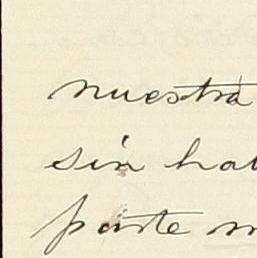 nuestra
sin hab
parte m